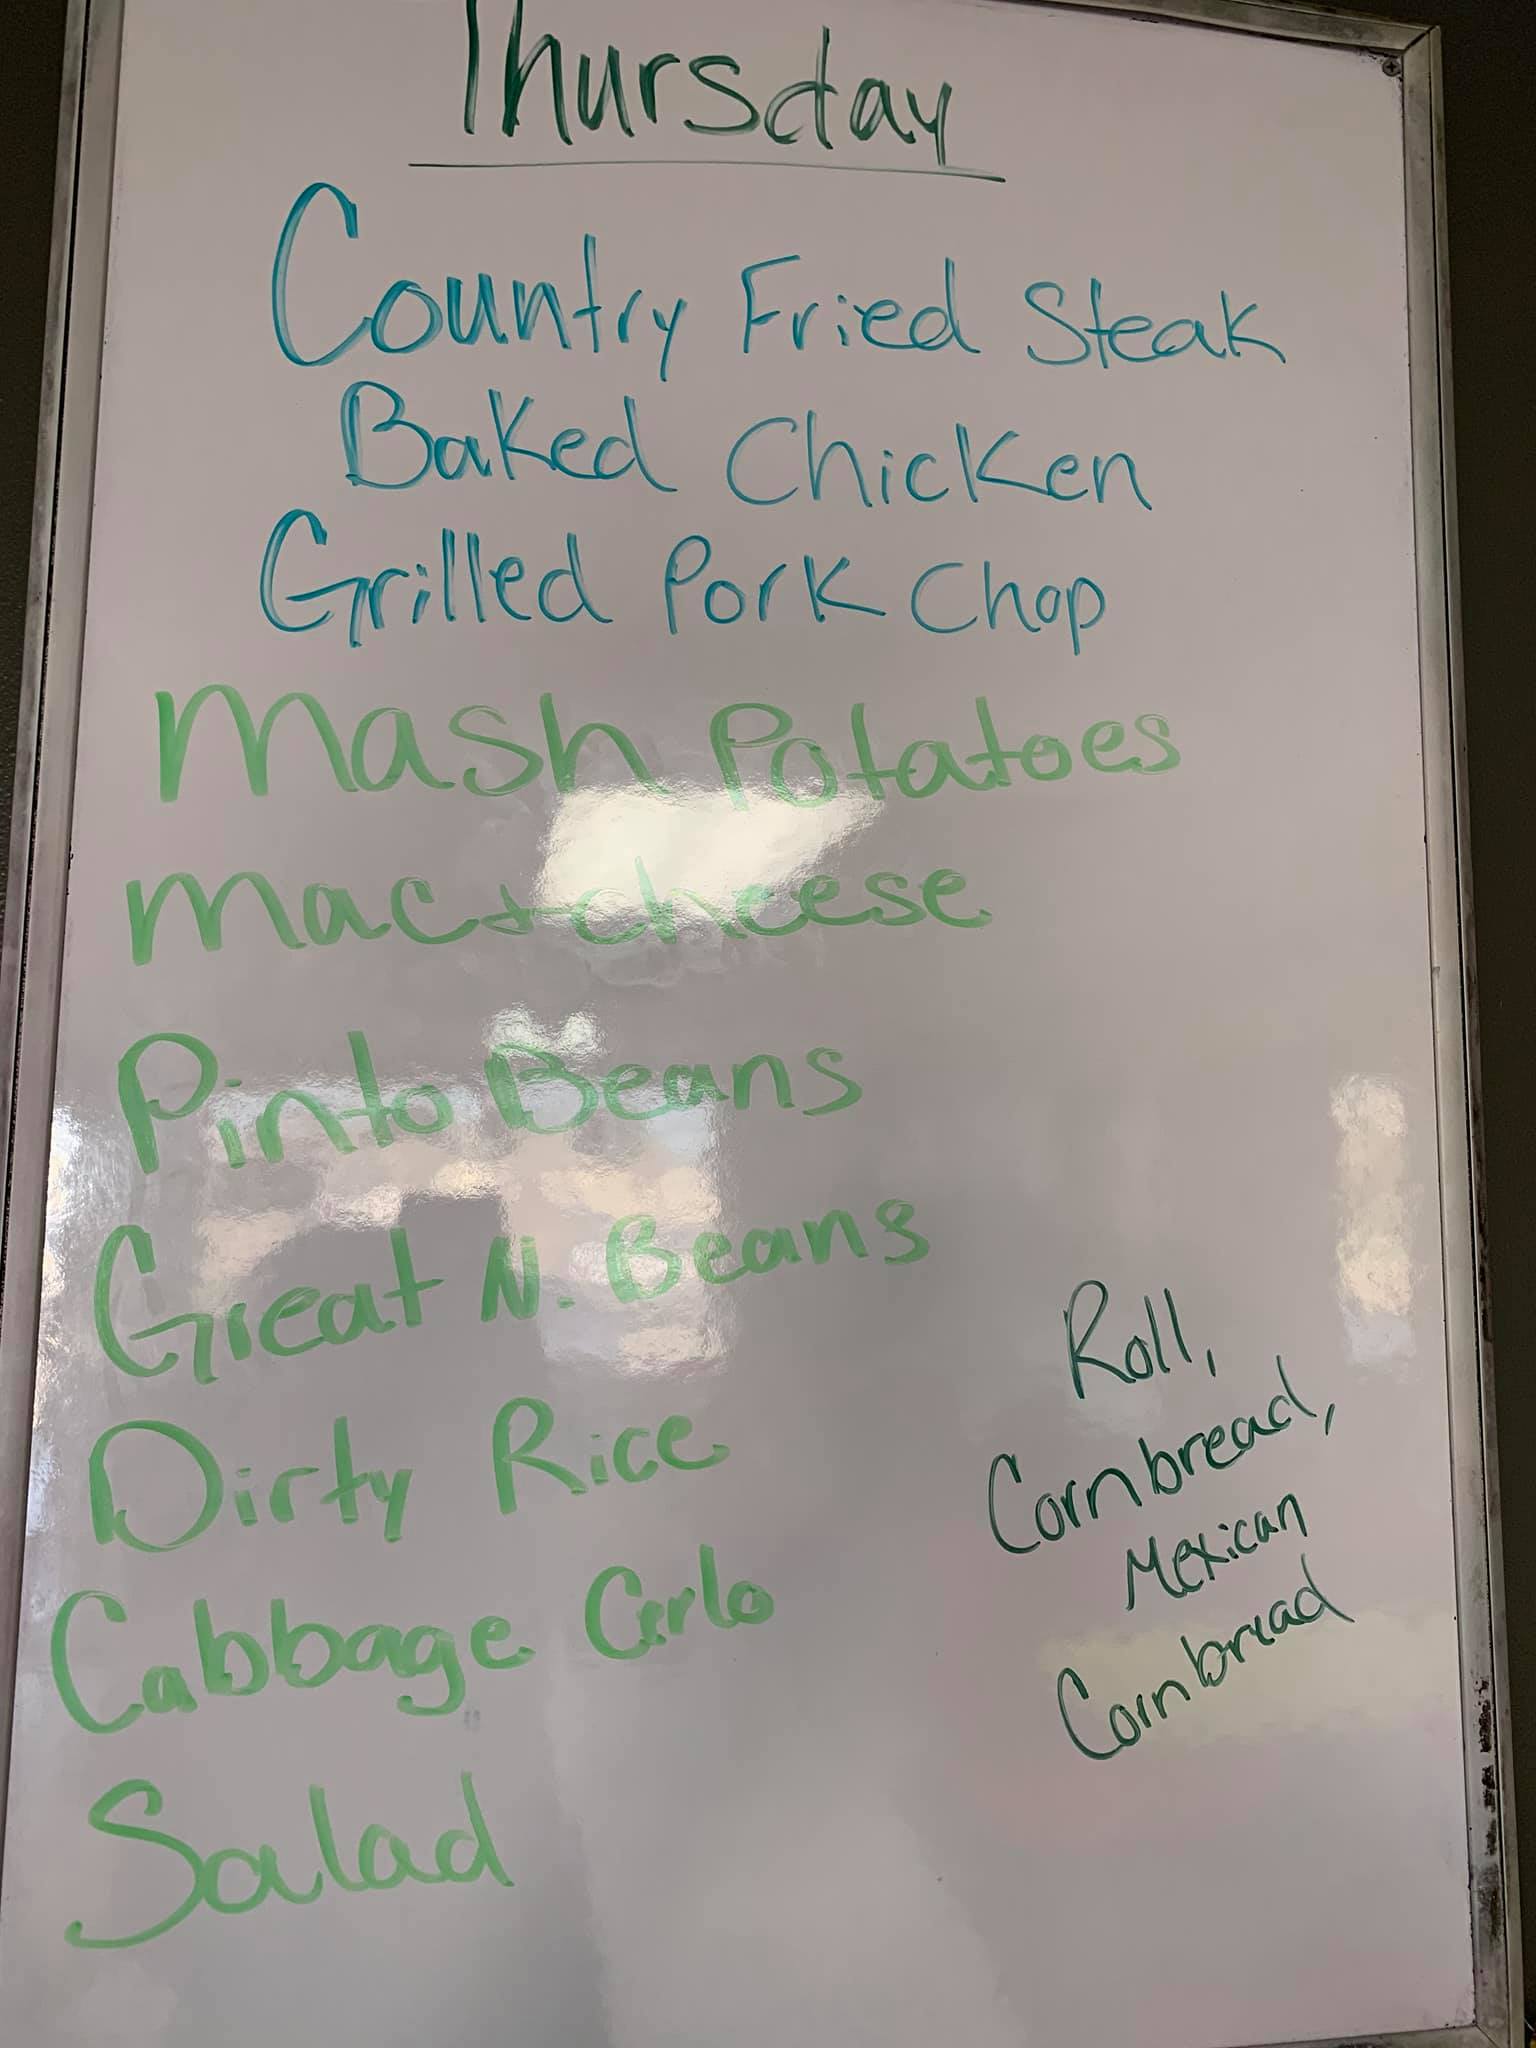 Thursday
Country Fried Steak
Baked Chicken
Grilled Pork Chop
Mash Potatoes
Mac + cheese
Pinto Beans
Great N. Beans
Dirty Rice
Cabbage
Salad
Roll,
Cornbread,
Mexican
Cornbread